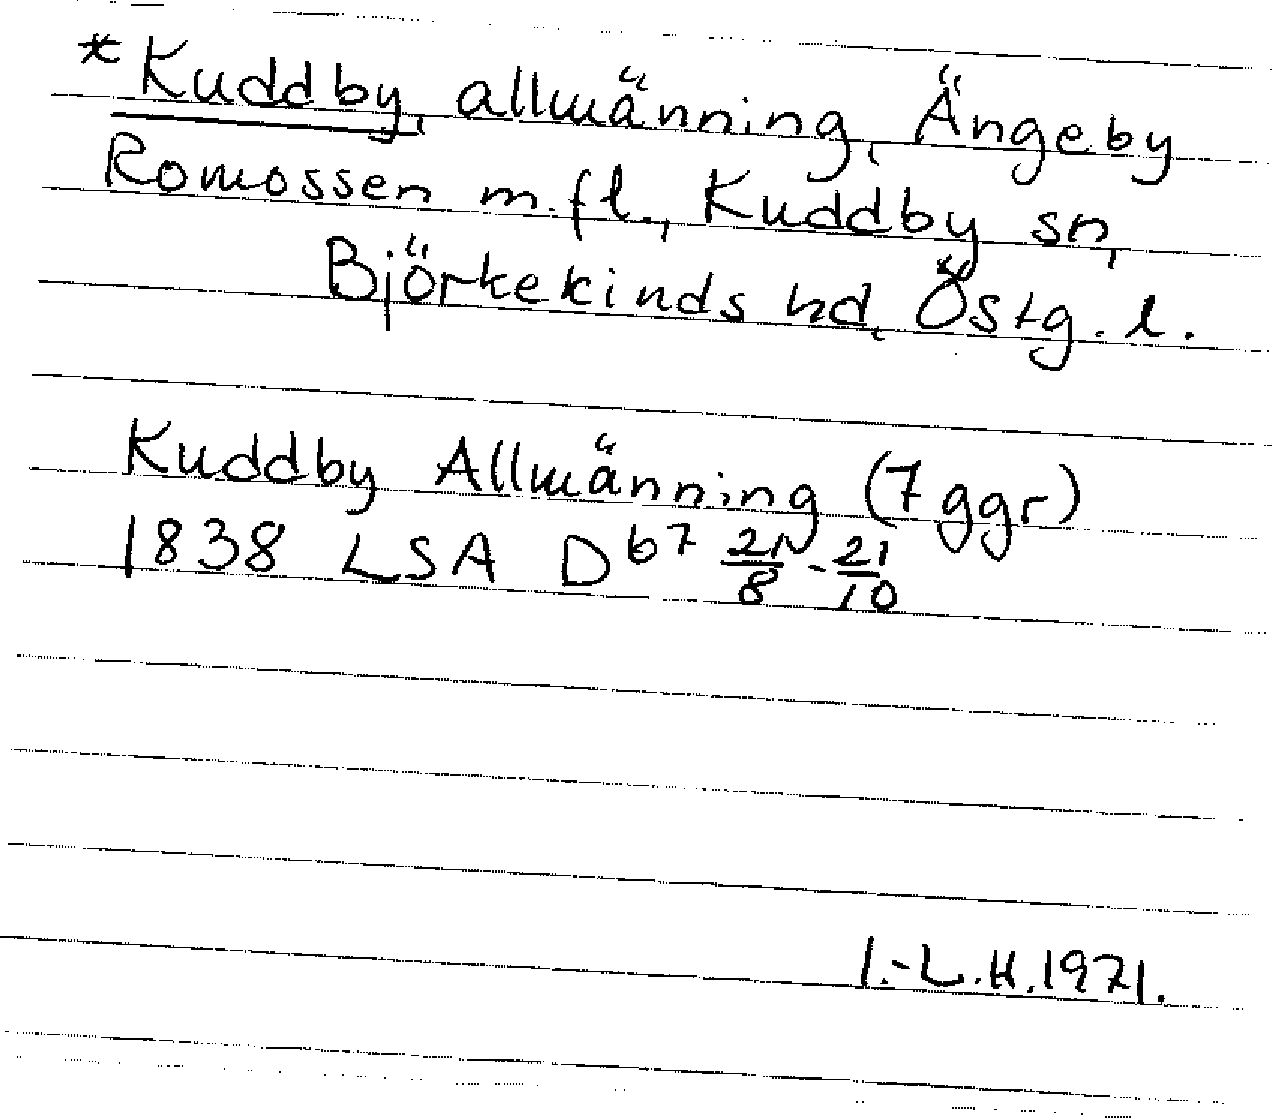 *Kuddby, allmänning, Ängeby
Romossen m.fl., Kuddby sn,
Björkekinds hd, Östg. l.
Kuddby Allmänning (7 ggr)
1838 LSA D b7 21/8 - 21/10
I.-L.H. 1971.